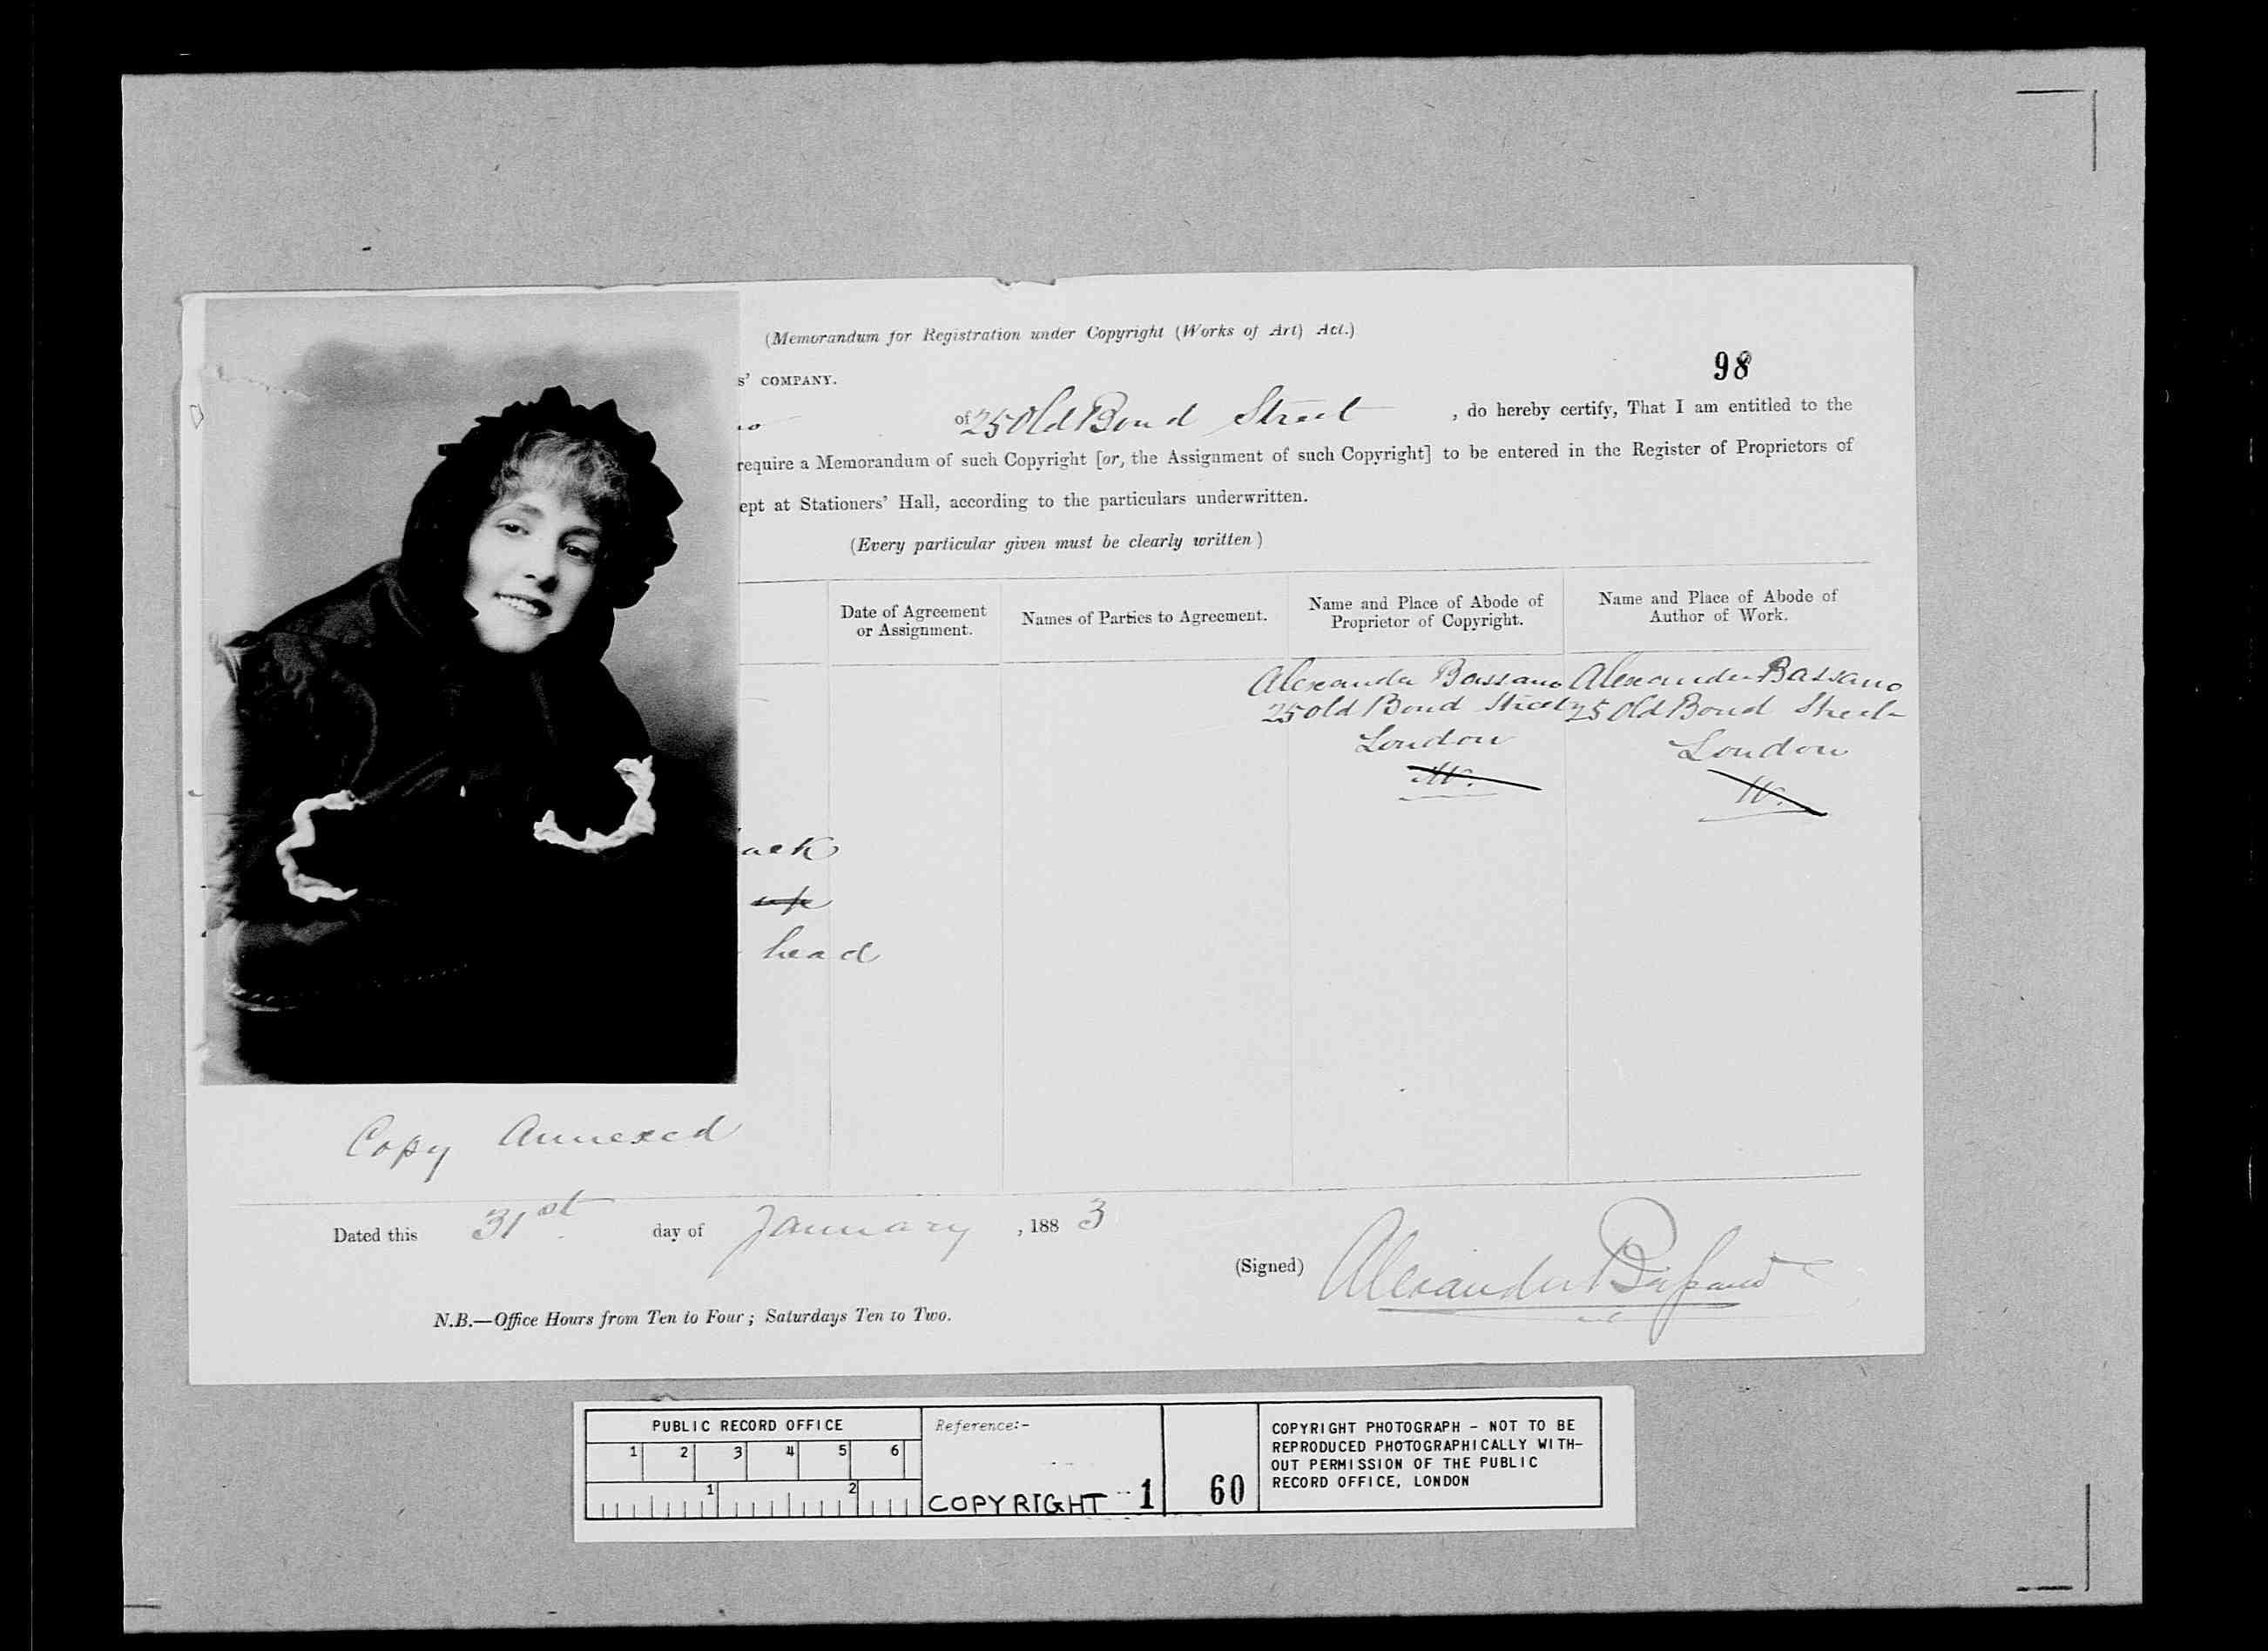 (Memorandum for Registration under Copyright (Works of Art) Act.)
98
s' COMPANY.
of 25 Old Bond Street , do hereby certify, That I am entitled to the
require a Memorandum of such Copyright [or, the Assignment of such Copyright] to be entered in the Register of Proprietors of
ept at Stationers' Hall, according to the particulars underwritten.
(Every particular given must be clearly written)
Date of Agreement
or Assignment.
Names of Parties to Agreement.
Name and Place of Abode of
Proprietor of Copyright.
Name and Place of Abode of
Author of Work.
Alexander Bassano
25 Old Bond Street
London
W.
Alexander Bassano
25 Old Bond Street
London
W.
ack
head
Copy Annexed
Dated this 31st day of January , 188 3
(Signed) Alexander Bassano
N.B.—Office Hours from Ten to Four; Saturdays Ten to Two.
PUBLIC RECORD OFFICE
1 2 3 4 5 6
1 2
Reference:-
COPYRIGHT 1
60
COPYRIGHT PHOTOGRAPH - NOT TO BE
REPRODUCED PHOTOGRAPHICALLY WITH-
OUT PERMISSION OF THE PUBLIC
RECORD OFFICE, LONDON